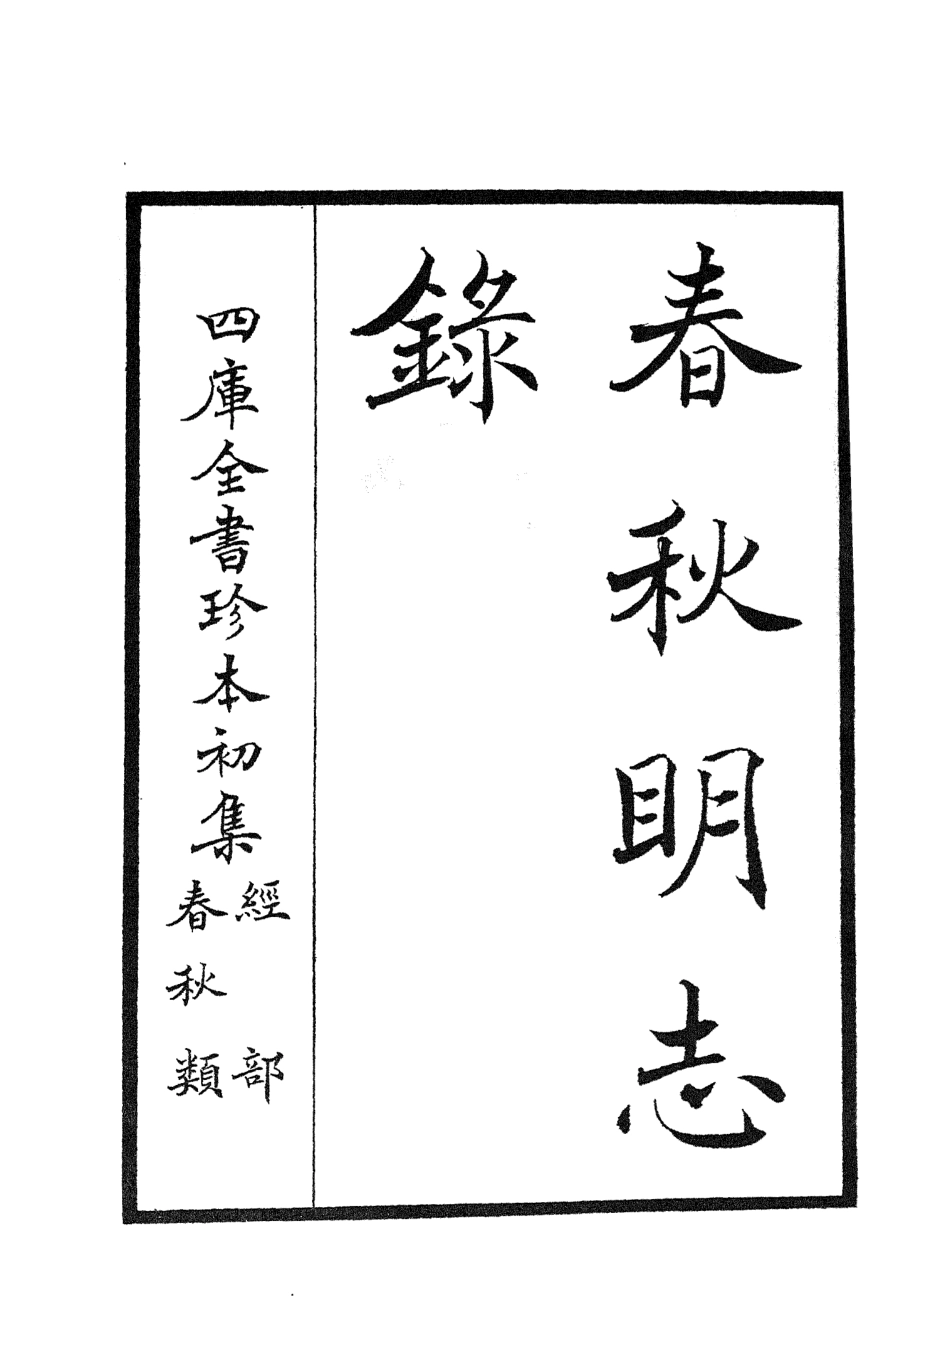 春秋明志
錄
四庫全書珍本初集
經部
春秋類